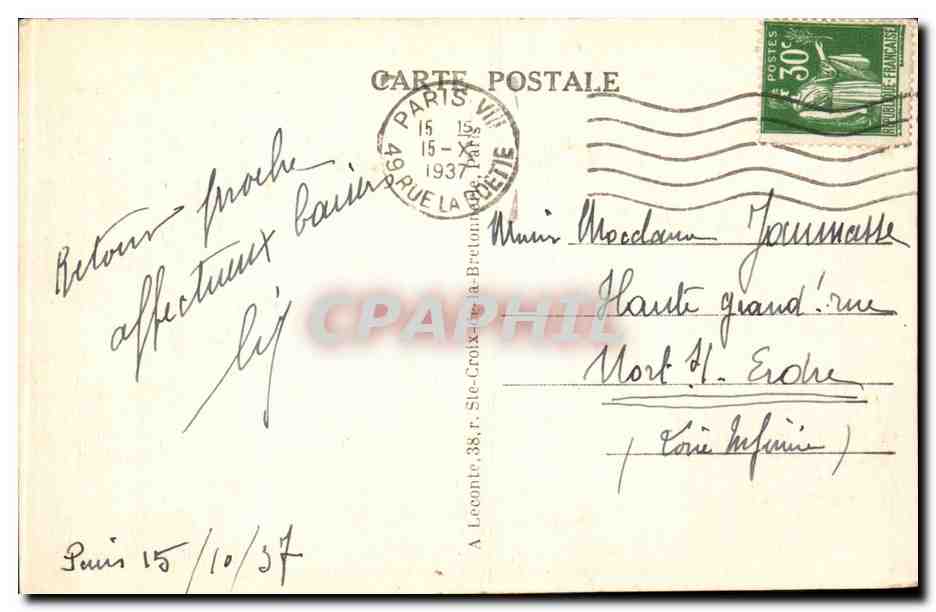 CARTE POSTALE
POSTES
30c
REPUBLIQUE FRANÇAISE
PARIS VIII
15 15
15-X
1937
49 RUE LA BOETIE
Retour proche
affectueux baisers
Paris 15/10/37
A Leconte, 38, r. Ste-Croix-de-la-Bretonnerie, Paris
Madame
Haute grand'rue
Nort s/- Erdre
(Loire Inférieure)
CPAPHIL